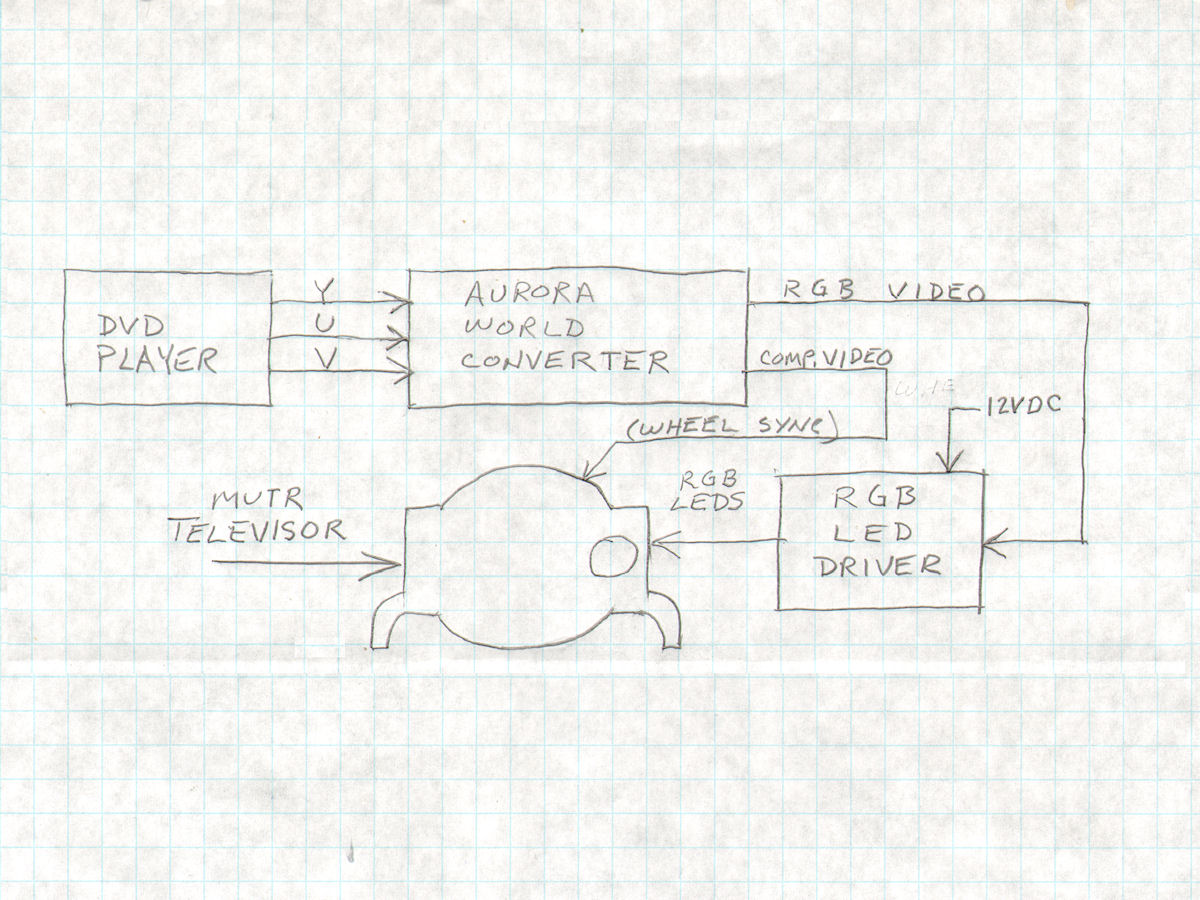 Y
U
V
DVD
PLAYER
AURORA
WORLD
CONVERTER
RGB VIDEO
COMP. VIDEO
12VDC
(WHEEL SYNC)
RGB
LEDS
MUTR
TELEVISOR
RGB
LED
DRIVER